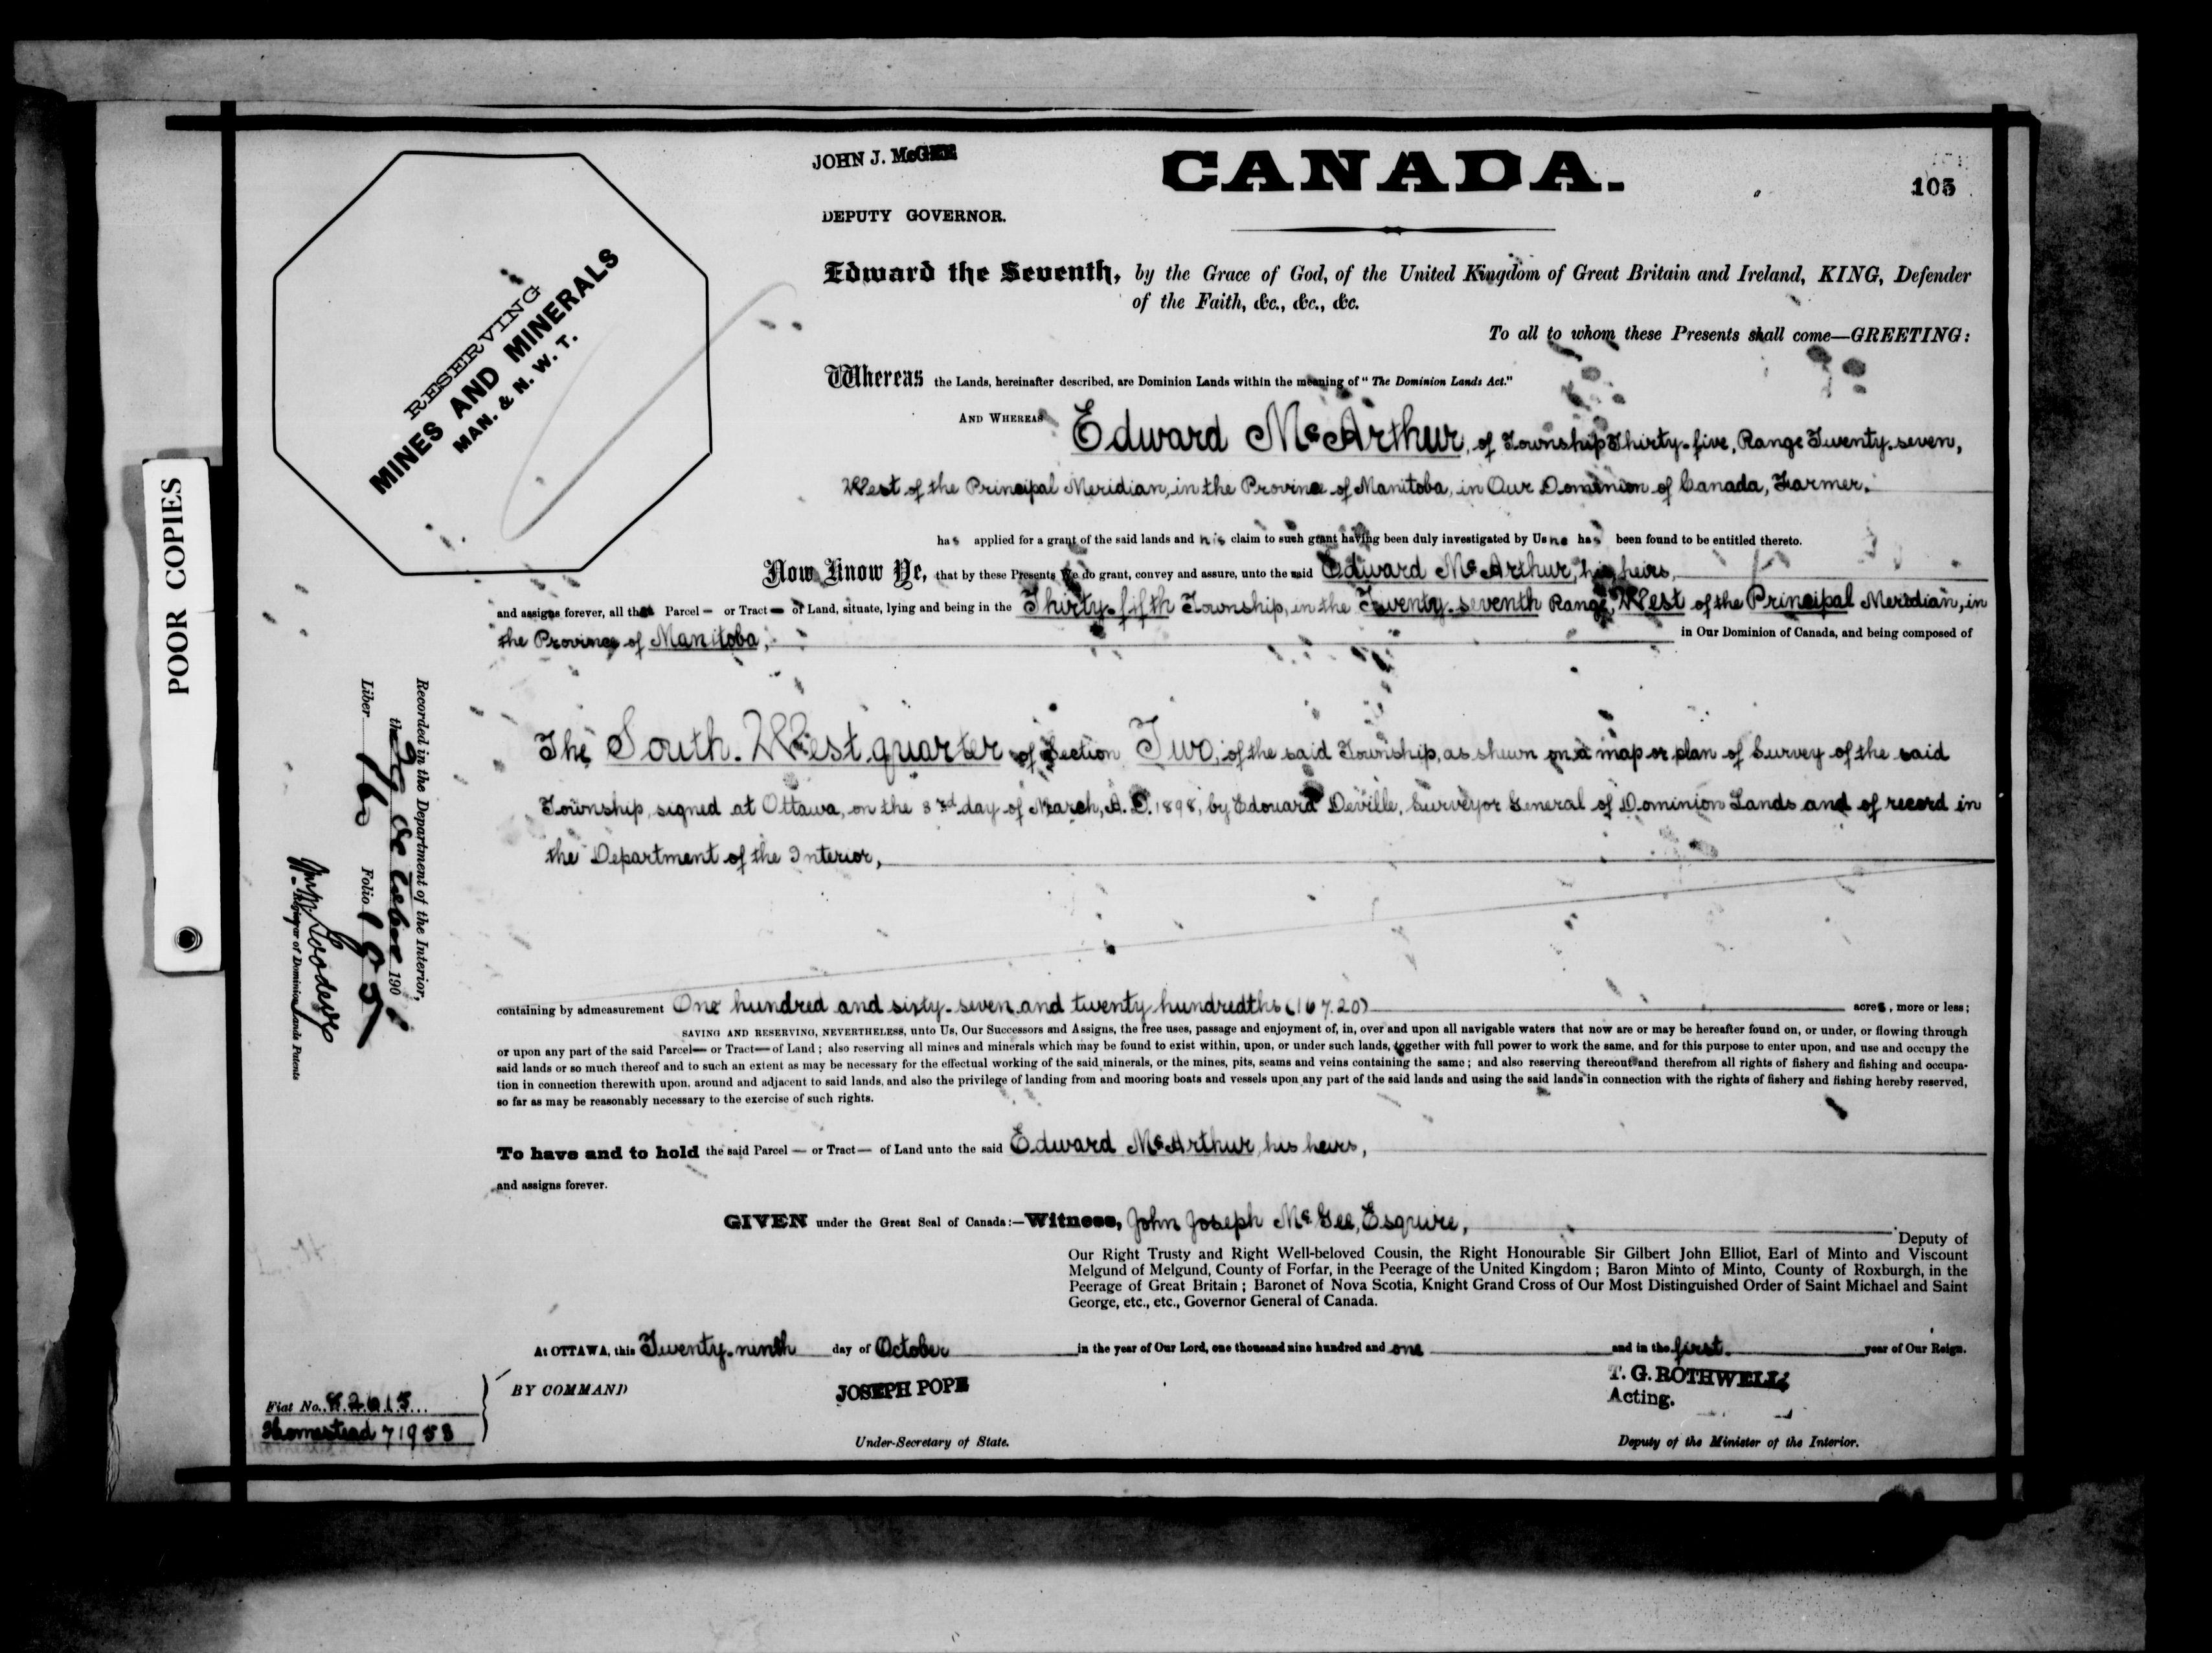 POOR COPIES
RESERVING
MINES AND MINERALS
MAN. & N. W. T.
JOHN J. McGEE
DEPUTY GOVERNOR.
CANADA.
105
Edward the Seventh, by the Grace of God, of the United Kingdom of Great Britain and Ireland, KING, Defender
of the Faith, &c., &c., &c.
To all to whom these Presents shall come—GREETING:
Whereas the Lands, hereinafter described, are Dominion Lands within the meaning of "The Dominion Lands Act."
AND WHEREAS Edward McArthur, of Township Thirty-five, Range Twenty-seven,
West of the Principal Meridian, in the Province of Manitoba, in Our Dominion of Canada, Farmer,
has applied for a grant of the said lands and his claim to such grant having been duly investigated by Us he has been found to be entitled thereto.
Now Know Ye, that by these Presents We do grant, convey and assure, unto the said Edward McArthur, his heirs,
and assigns forever, all that Parcel — or Tract — of Land, situate, lying and being in the Thirty-fifth Township, in the Twenty-seventh Range, West of the Principal Meridian, in
the Province of Manitoba, in Our Dominion of Canada, and being composed of
The South-West quarter of Section Two, of the said Township, as shewn on a map or plan of Survey of the said
Township, signed at Ottawa, on the 3rd day of March, A.D. 1898, by Edouard Deville, Surveyor General of Dominion Lands and of record in
the Department of the Interior,
containing by admeasurement One hundred and sixty-seven and twenty hundredths (167.20) acres, more or less;
SAVING AND RESERVING, NEVERTHELESS, unto Us, Our Successors and Assigns, the free uses, passage and enjoyment of, in, over and upon all navigable waters that now are or may be hereafter found on, or under, or flowing through
or upon any part of the said Parcel— or Tract— of Land; also reserving all mines and minerals which may be found to exist within, upon, or under such lands, together with full power to work the same, and for this purpose to enter upon, and use and occupy the
said lands or so much thereof and to such an extent as may be necessary for the effectual working of the said minerals, or the mines, pits, seams and veins containing the same; and also reserving thereout and therefrom all rights of fishery and fishing and occupa-
tion in connection therewith upon, around and adjacent to said lands, and also the privilege of landing from and mooring boats and vessels upon any part of the said lands and using the said lands in connection with the rights of fishery and fishing hereby reserved,
so far as may be reasonably necessary to the exercise of such rights.
To have and to hold the said Parcel — or Tract — of Land unto the said Edward McArthur, his heirs,
and assigns forever.
GIVEN under the Great Seal of Canada:—Witness, John Joseph McGee, Esquire,
Deputy of
Our Right Trusty and Right Well-beloved Cousin, the Right Honourable Sir Gilbert John Elliot, Earl of Minto and Viscount
Melgund of Melgund, County of Forfar, in the Peerage of the United Kingdom; Baron Minto of Minto, County of Roxburgh, in the
Peerage of Great Britain; Baronet of Nova Scotia, Knight Grand Cross of Our Most Distinguished Order of Saint Michael and Saint
George, etc., etc., Governor General of Canada.
At OTTAWA, this Twenty-ninth day of October in the year of Our Lord, one thousand nine hundred and one and in the first year of Our Reign.
BY COMMAND
JOSEPH POPE
Under-Secretary of State.
T. G. ROTHWELL
Acting.
Deputy of the Minister of the Interior.
Fiat No. 82615
Homestead 71953
Recorded in the Department of the Interior,
the October 190
Liber 160 Folio
Registrar of Dominion Lands Patents